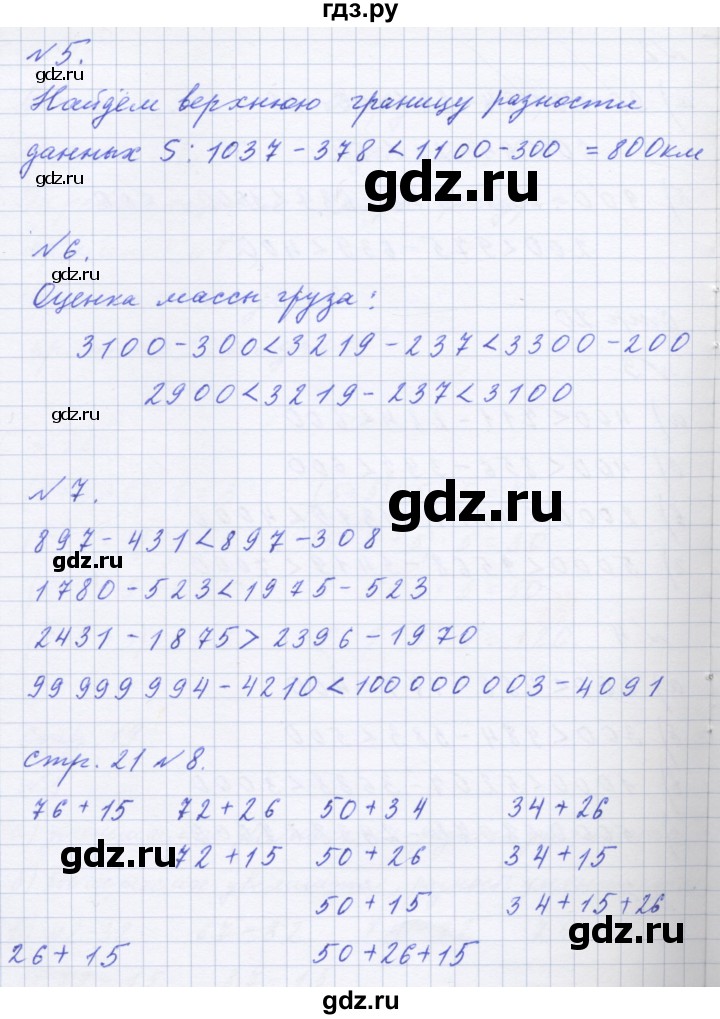 гдз.ру
№5.
gdz.ru
Найдём верхнюю границу разности
данных S: 1037-378<1100-300 =800км
gdz.ru
gdz.ru
№6.
gdz.ru
Оценка массы груза:
3100-300<3219-237<3300-200
2900<3219-237<3100
gdz.ru
№7.
gdz.ru
897-431<897-308
gdz.ru
1780-523<1975-523
2431-1875>2396-1970
99999994-4210<100000003-4091
стр. 21 №8.
76+15 72+26 50+34 34+26
gdz.ru 72+15 50+26 34+15
50+15 34+15+26
gdz.ru
26+15 50+26+15
gdz.ru